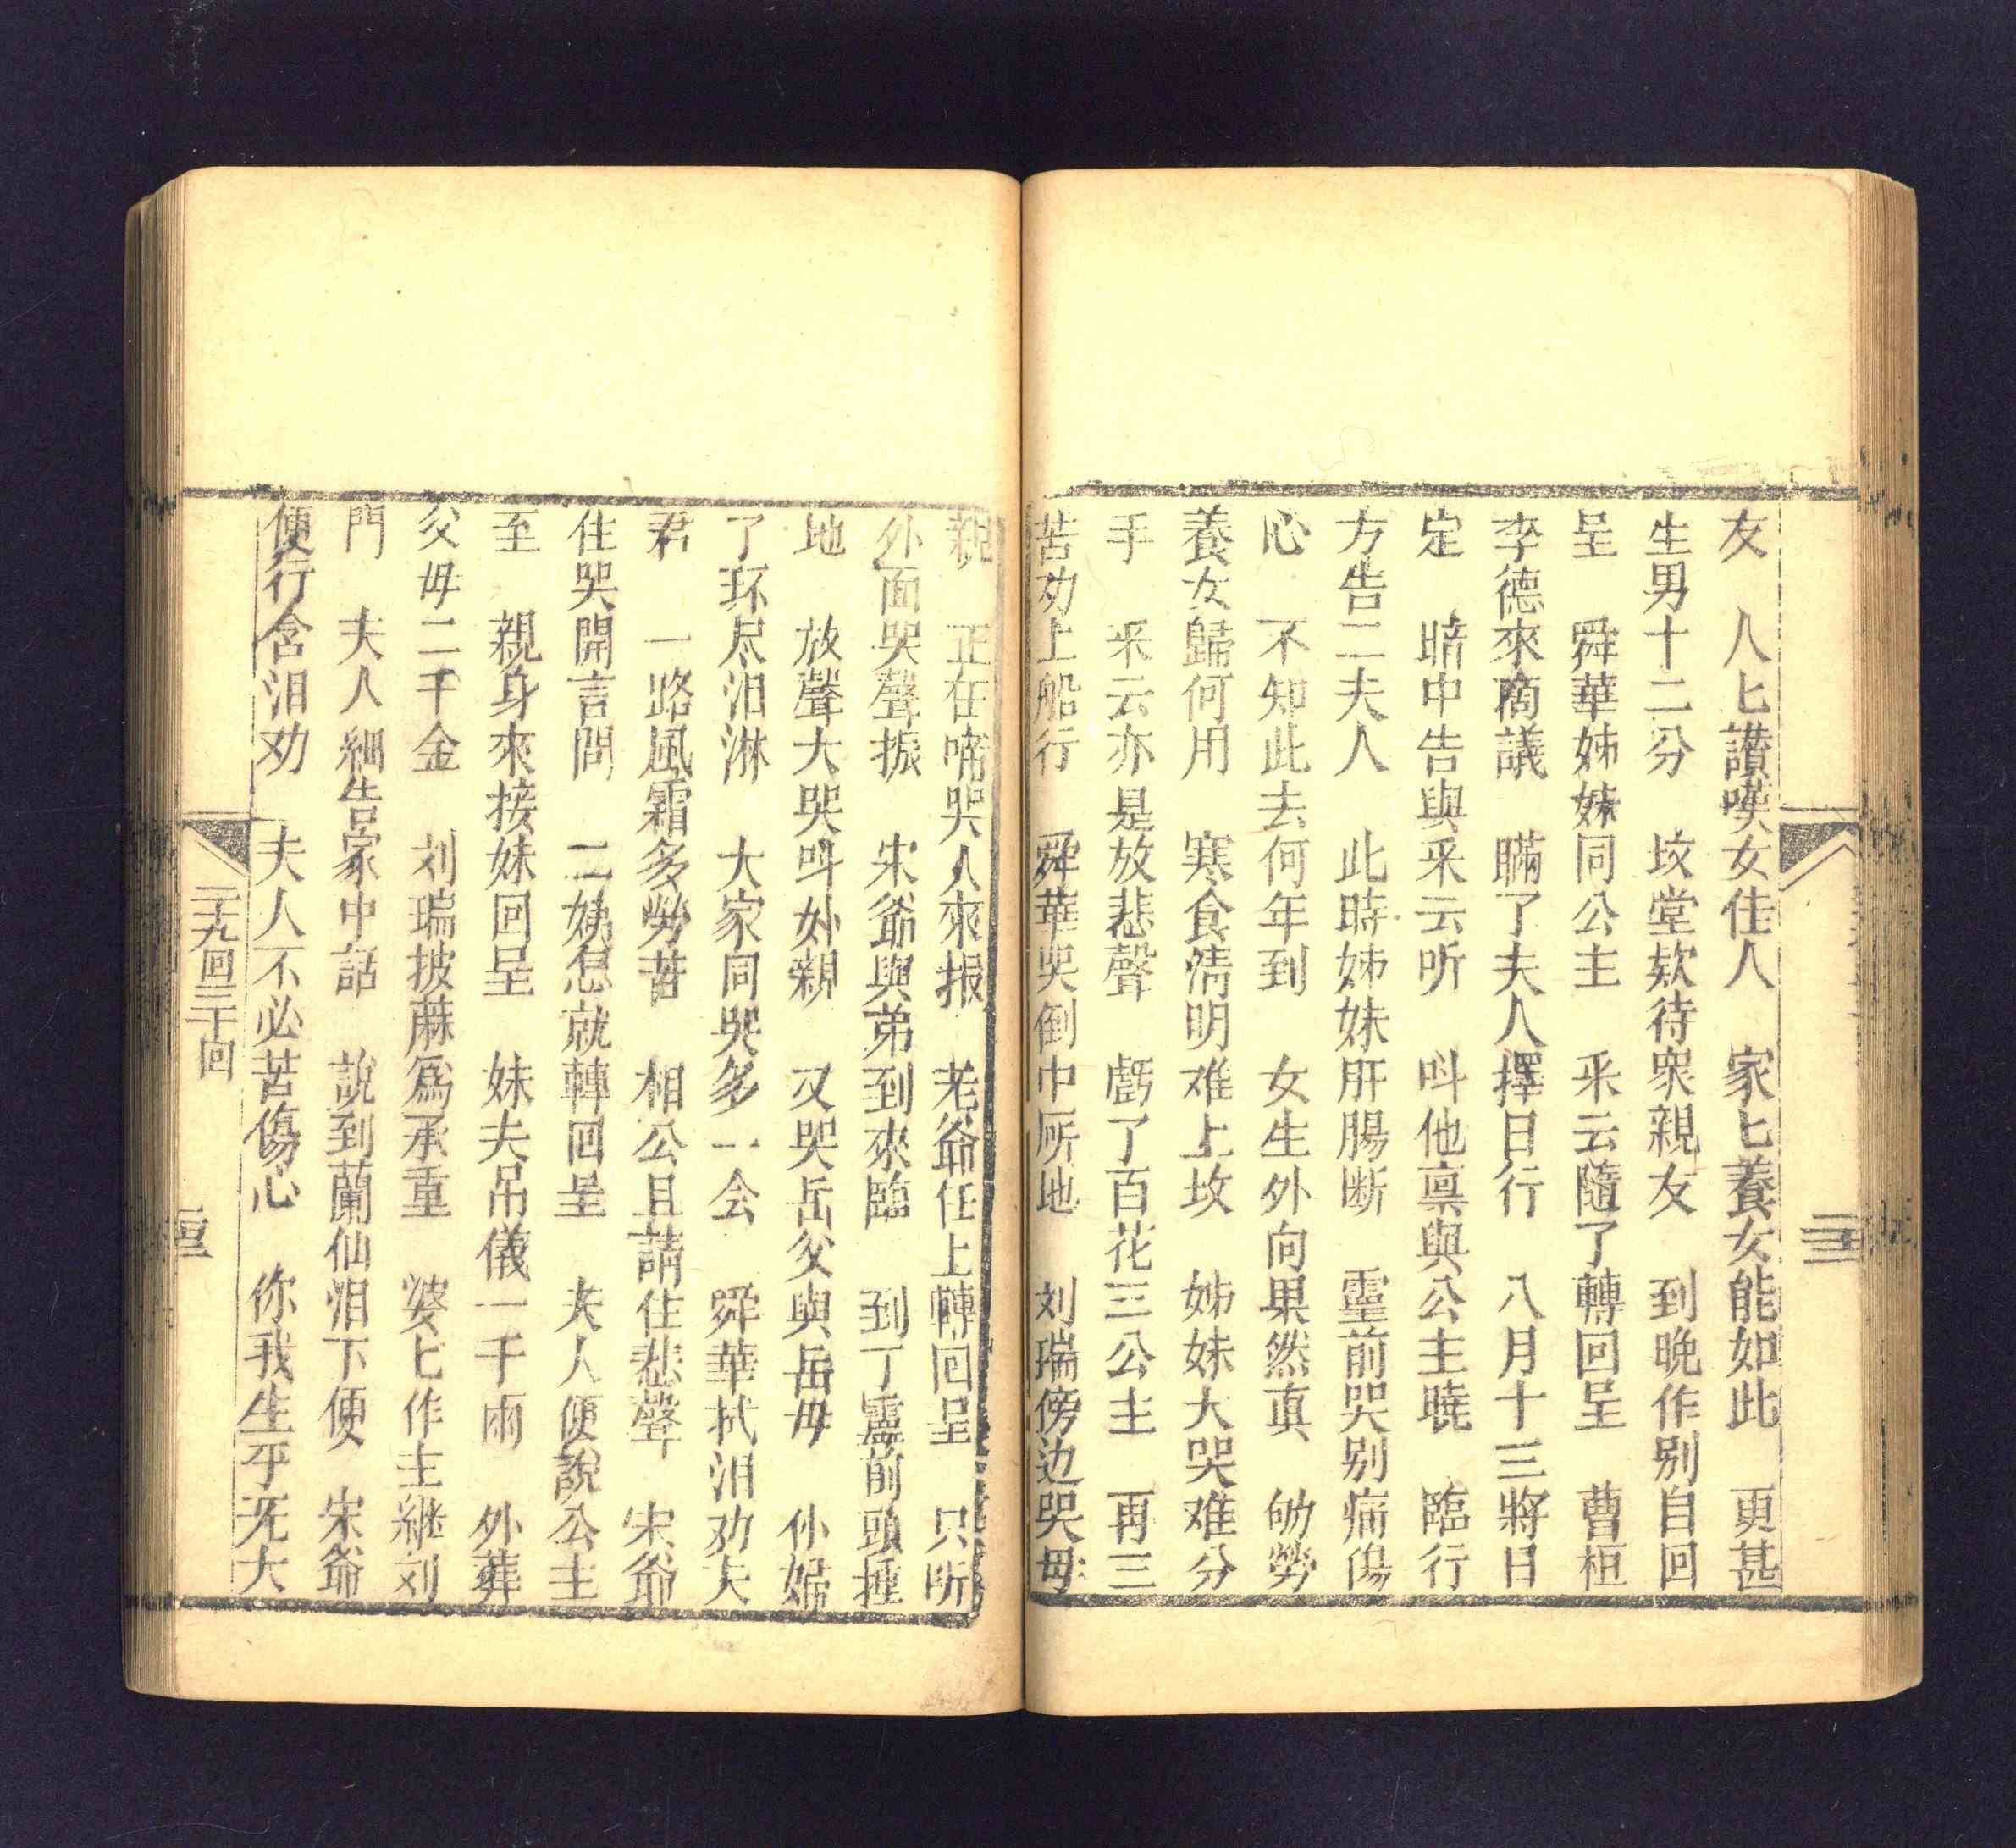 友　人匕讃嘆女佳人　家匕養女能如此　更甚
生男十二分　坟堂欵待衆親友　到晚作别自回
呈　舜華姊妹同公主　采云隨了轉回呈　曹桓
李德來商議　瞞了夫人擇日行　八月十三將日
定　暗中告與采云听　呌他禀與公主暁　臨行
方告二夫人　此時姊妹肝腸断　靈前哭别痛傷
心　不知此去何年到　女生外向果然真　劬勞
養女歸何用　寒食清明难上坟　姊妹大哭难分
手　采云亦是放悲聲　虧了百花三公主　再三
苦劝上船行　舜華哭倒中所地　刘瑞傍边哭母
親　正在啼哭人來报　老爺任上轉回呈　只所
外面哭聲振　宋爺與弟到來臨　到了靈前頭捶
地　放聲大哭呌妙親　又哭岳父與岳母　仆婦
了环尽泪淋　大家同哭多一会　舜華拭泪劝夫
君　一路風霜多勞苦　相公且請住悲聲　宋爺
住哭開言問　二姨怎就轉回呈　夫人便說公主
至　親身來接妹回呈　妹夫吊儀一千兩　外葬
父母二千金　刘瑞披蔴為承重　婆匕作主継刘
門　夫人細告家中話　說到蘭仙泪下便　宋爺
便行含泪劝　夫人不必苦傷心　你我生平无大
二十九回三十回